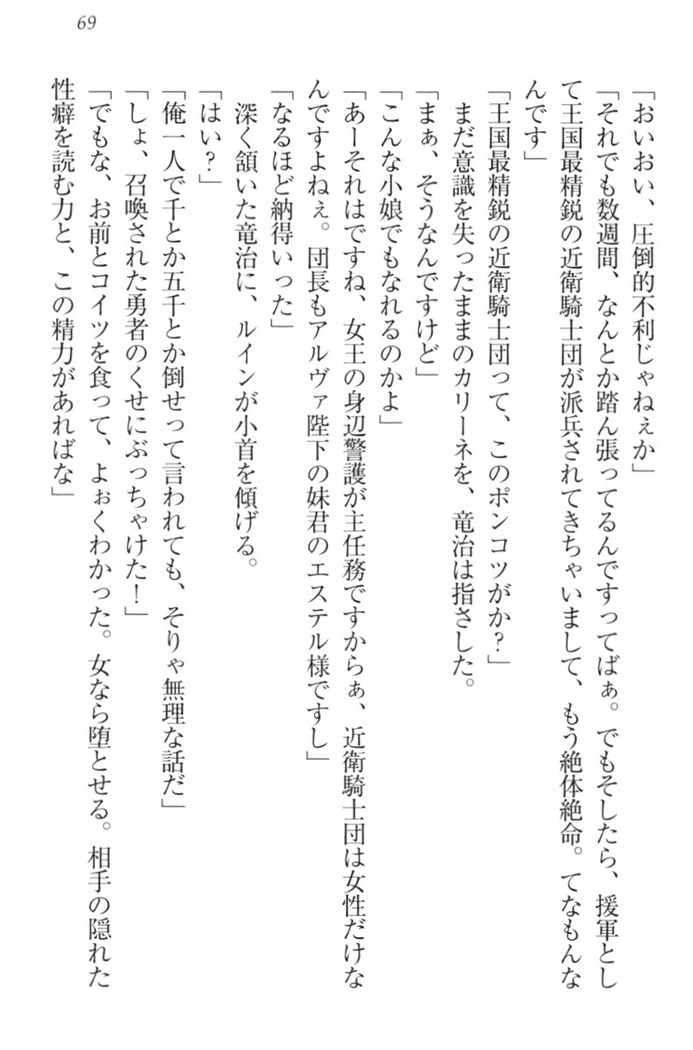 69
「おいおい、圧倒的不利じゃねぇか」
「それでも数週間、なんとか踏ん張ってるんですってばぁ。でもそしたら、援軍とし
て王国最精鋭の近衛騎士団が派兵されてきちゃいまして、もう絶体絶命。てなもんな
んです」
「王国最精鋭の近衛騎士団って、このポンコツがか？」
まだ意識を失ったままのカリーネを、竜治は指さした。
「まぁ、そうなんですけど」
「こんな小娘でもなれるのかよ」
「あーそれはですね、女王の身辺警護が主任務ですからぁ、近衛騎士団は女性だけな
んですよねぇ。団長もアルヴァ陛下の妹君のエステル様ですし」
「なるほど納得いった」
深く頷いた竜治に、ルインが小首を傾げる。
「はい？」
「俺一人で千とか五千とか倒せって言われても、そりゃ無理な話だ」
「しょ、召喚された勇者のくせにぶっちゃけた！」
「でもな、お前とコイツを食って、よぉくわかった。女なら堕とせる。相手の隠れた
性癖を読む力と、この精力があればな」